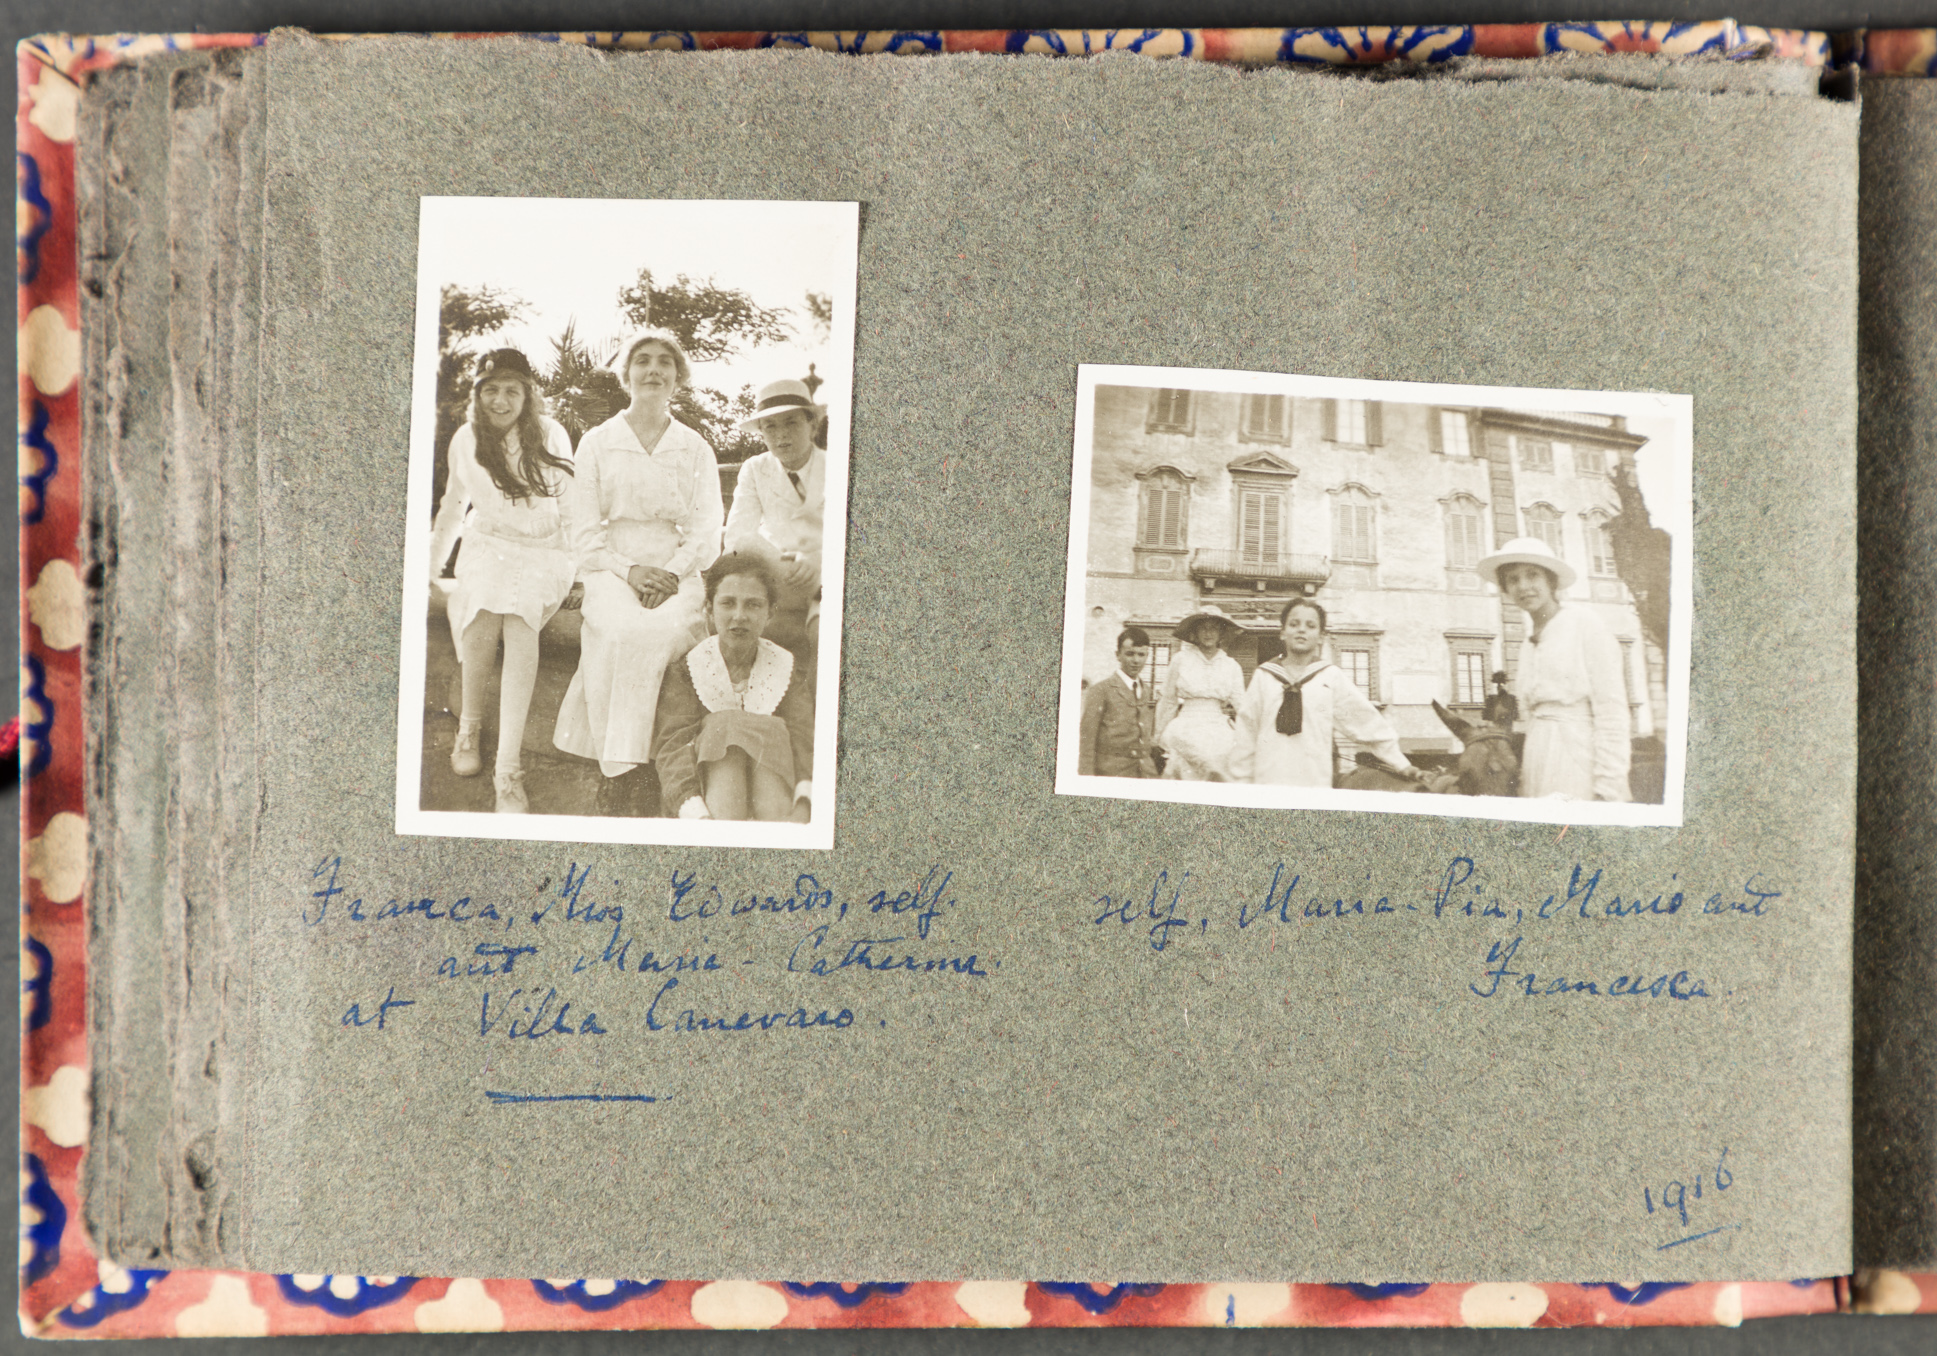 Franca, Miss Edwards, self.
and Maria-Catherina.
at Villa Canevaro.
self, Maria-Pia, Mario and
Francesca.
1916